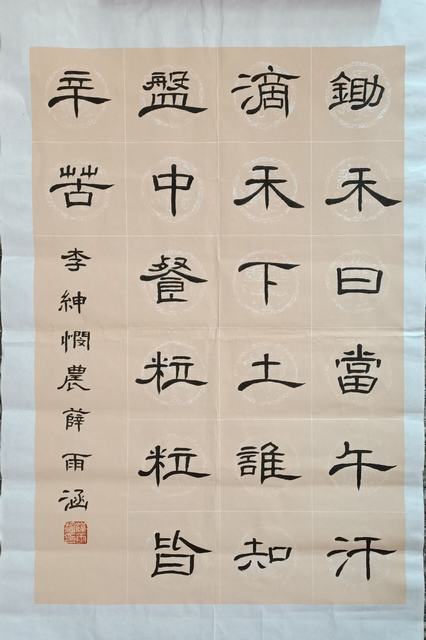 鋤禾日當午汗
滴禾下土誰知
盤中餐粒粒皆
辛苦
李紳憫農薛雨涵